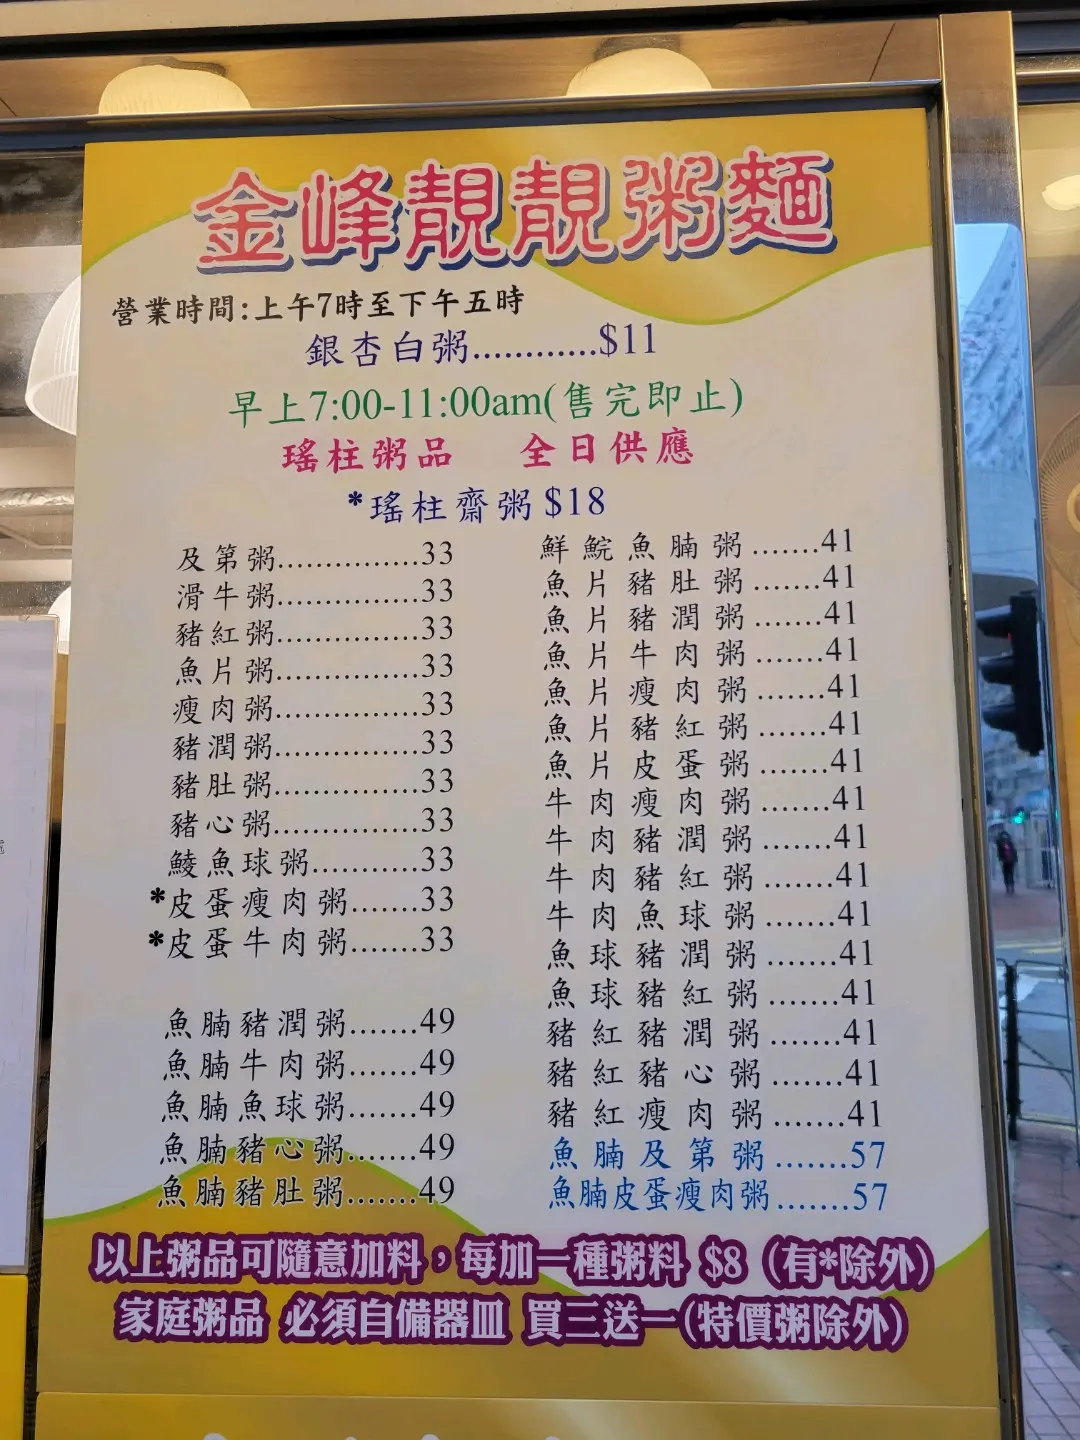 金峰靚靚粥麵
營業時間:上午7時至下午五時
銀杏白粥............$11
早上7:00-11:00am(售完即止)
瑤柱粥品 全日供應
*瑤柱齋粥 $18
及第粥...............33
滑牛粥...............33
豬紅粥...............33
魚片粥...............33
瘦肉粥...............33
豬潤粥...............33
豬肚粥...............33
豬心粥...............33
鯪魚球粥...........33
*皮蛋瘦肉粥.......33
*皮蛋牛肉粥.......33
魚腩豬潤粥.......49
魚腩牛肉粥.......49
魚腩魚球粥.......49
魚腩豬心粥.......49
魚腩豬肚粥.......49
鮮鯇魚腩粥.......41
魚片豬肚粥.......41
魚片豬潤粥.......41
魚片牛肉粥.......41
魚片瘦肉粥.......41
魚片豬紅粥.......41
魚片皮蛋粥.......41
牛肉瘦肉粥.......41
牛肉豬潤粥.......41
牛肉豬紅粥.......41
牛肉魚球粥.......41
魚球豬潤粥.......41
魚球豬紅粥.......41
豬紅豬潤粥.......41
豬紅豬心粥.......41
豬紅瘦肉粥.......41
魚腩及第粥.......57
魚腩皮蛋瘦肉粥.......57
以上粥品可隨意加料，每加一種粥料 $8 (有*除外)
家庭粥品 必須自備器皿 買三送一(特價粥除外)